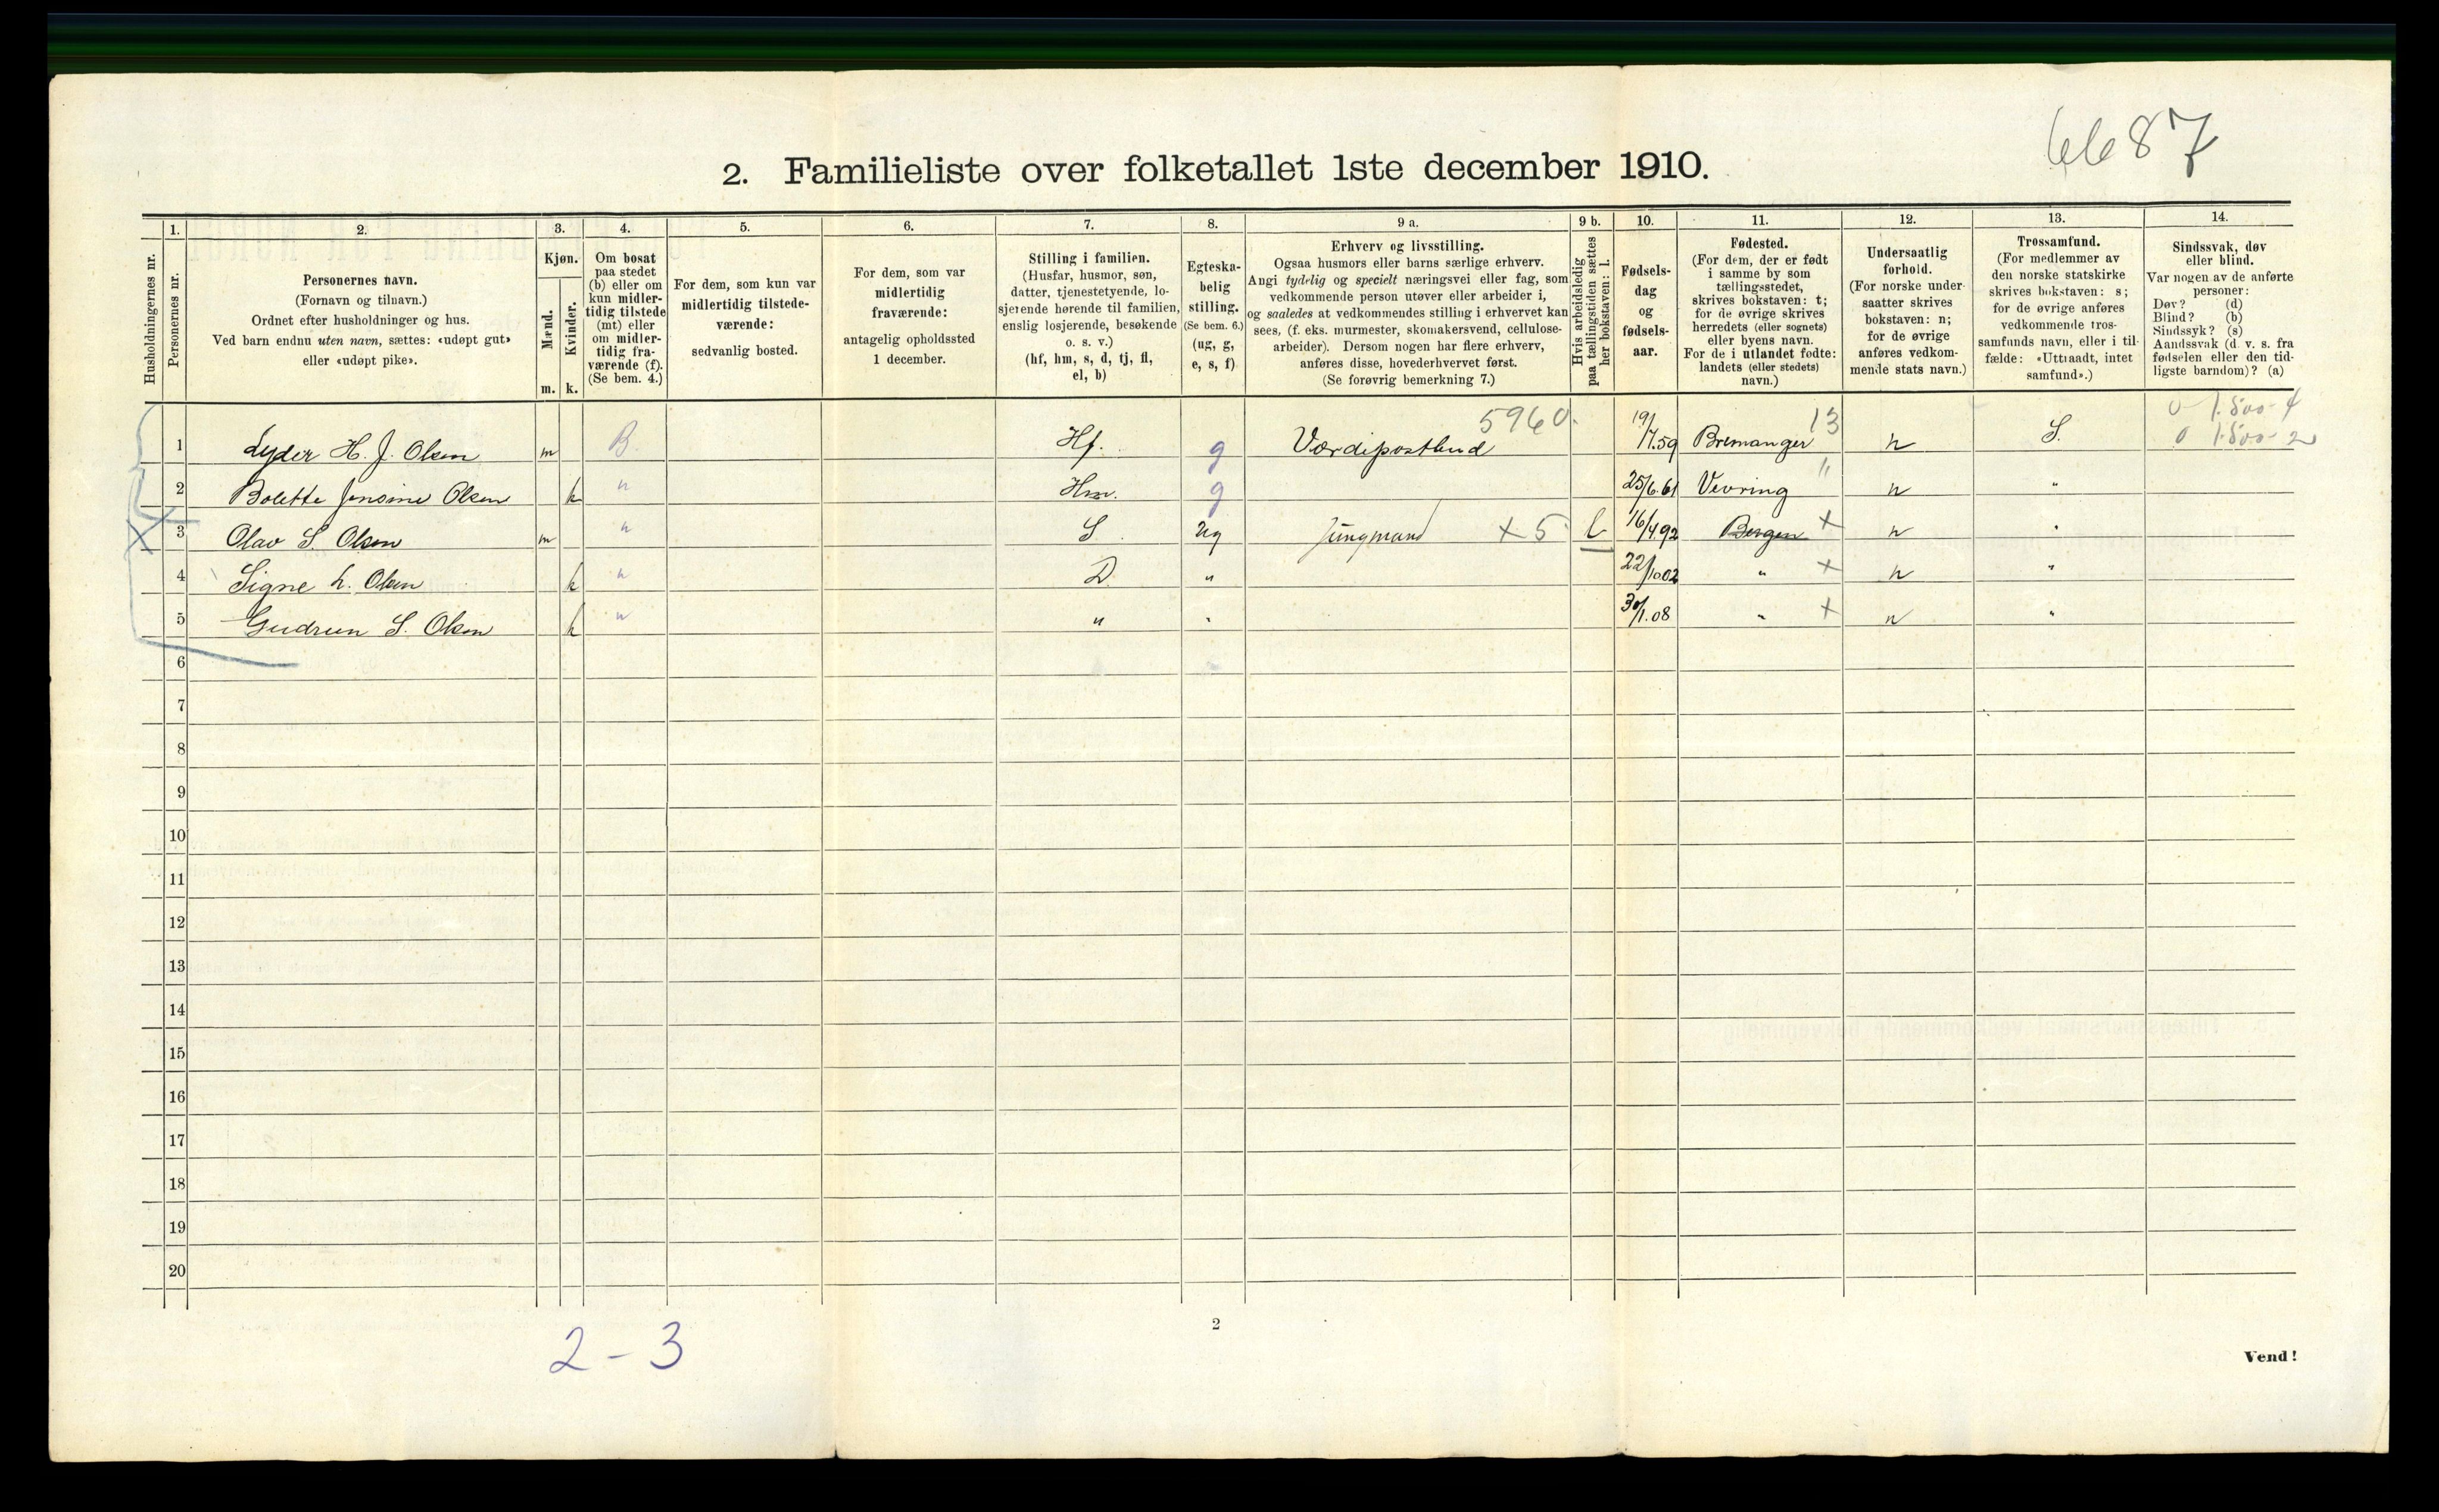 6687
2. Familieliste over folketallet 1ste december 1910.
Husholdningernes nr.
1.
Personernes nr.
2.
Personernes navn.
(Fornavn og tilnavn.)
Ordnet efter husholdninger og hus.
Ved barn endnu uten navn, sættes: «udøpt gut»
eller «udøpt pike».
3.
Kjøn.
Mænd.
Kvinder.
m. k.
4.
Om bosat
paa stedet
(b) eller om
kun midler-
tidig tilstede
(mt) eller
om midler-
tidig fra-
værende (f).
(Se bem. 4.)
5.
For dem, som kun var
midlertidig tilstede-
værende:
sedvanlig bosted.
6.
For dem, som var
midlertidig
fraværende:
antagelig opholdssted
1 december.
7.
Stilling i familien.
(Husfar, husmor, søn,
datter, tjenestetyende, lo-
sjerende hørende til familien,
enslig losjerende, besøkende
o. s. v.)
(hf, hm, s, d, tj, fl,
el, b)
8.
Egteska-
belig
stilling.
(Se bem. 6.)
(ug, g,
e, s, f)
9 a.
Erhverv og livsstilling.
Ogsaa husmors eller barns særlige erhverv.
Angi tydelig og specielt næringsvei eller fag, som
vedkommende person utøver eller arbeider i,
og saaledes at vedkommendes stilling i erhvervet kan
sees, (f. eks. murmester, skomakersvend, cellulose-
arbeider). Dersom nogen har flere erhverv,
anføres disse, hovederhvervet først.
(Se forøvrig bemerkning 7.)
9 b.
Hvis arbeidsledig
paa tællingstiden sættes
her bokstaven: l.
10.
Fødsels-
dag
og
fødsels-
aar.
11.
Fødested.
(For dem, der er født
i samme by som
tællingsstedet,
skrives bokstaven: t;
for de øvrige skrives
herredets (eller sognets)
eller byens navn.
For de i utlandet fødte:
landets (eller stedets)
navn.)
12.
Undersaatlig
forhold.
(For norske under-
saatter skrives
bokstaven: n;
for de øvrige
anføres vedkom-
mende stats navn.)
13.
Trossamfund.
(For medlemmer av
den norske statskirke
skrives bokstaven: s;
for de øvrige anføres
vedkommende tros-
samfunds navn, eller i til-
fælde: «Uttraadt, intet
samfund».)
14.
Sindssvak, døv
eller blind.
Var nogen av de anførte
personer:
Døv? (d)
Blind? (b)
Sindssyk? (s)
Aandssvak (d. v. s. fra
fødselen eller den tid-
ligste barndom)? (a)
5960. 13 0 1.800-4
1 Lyder H. J. Olsen m B. Hf. g Værdipostbud 19/7.59 Bremanger n S. 0 1.800-2
2 Bolette Jensine Olsen k " Hm. g 25/6.61 Vevring " n "
3 Olav S. Olsen m " S. ug Jungmand x 5 l 16/4.92 Bergen x n "
4 Signe L. Olsen k " D. " 22/10.02 " x n "
5 Gudrun S. Olsen k " " " 30/1.08 " x n "
6
7
8
9
10
11
12
13
14
15
16
17
18
19
20
2 - 3
2
Vend!